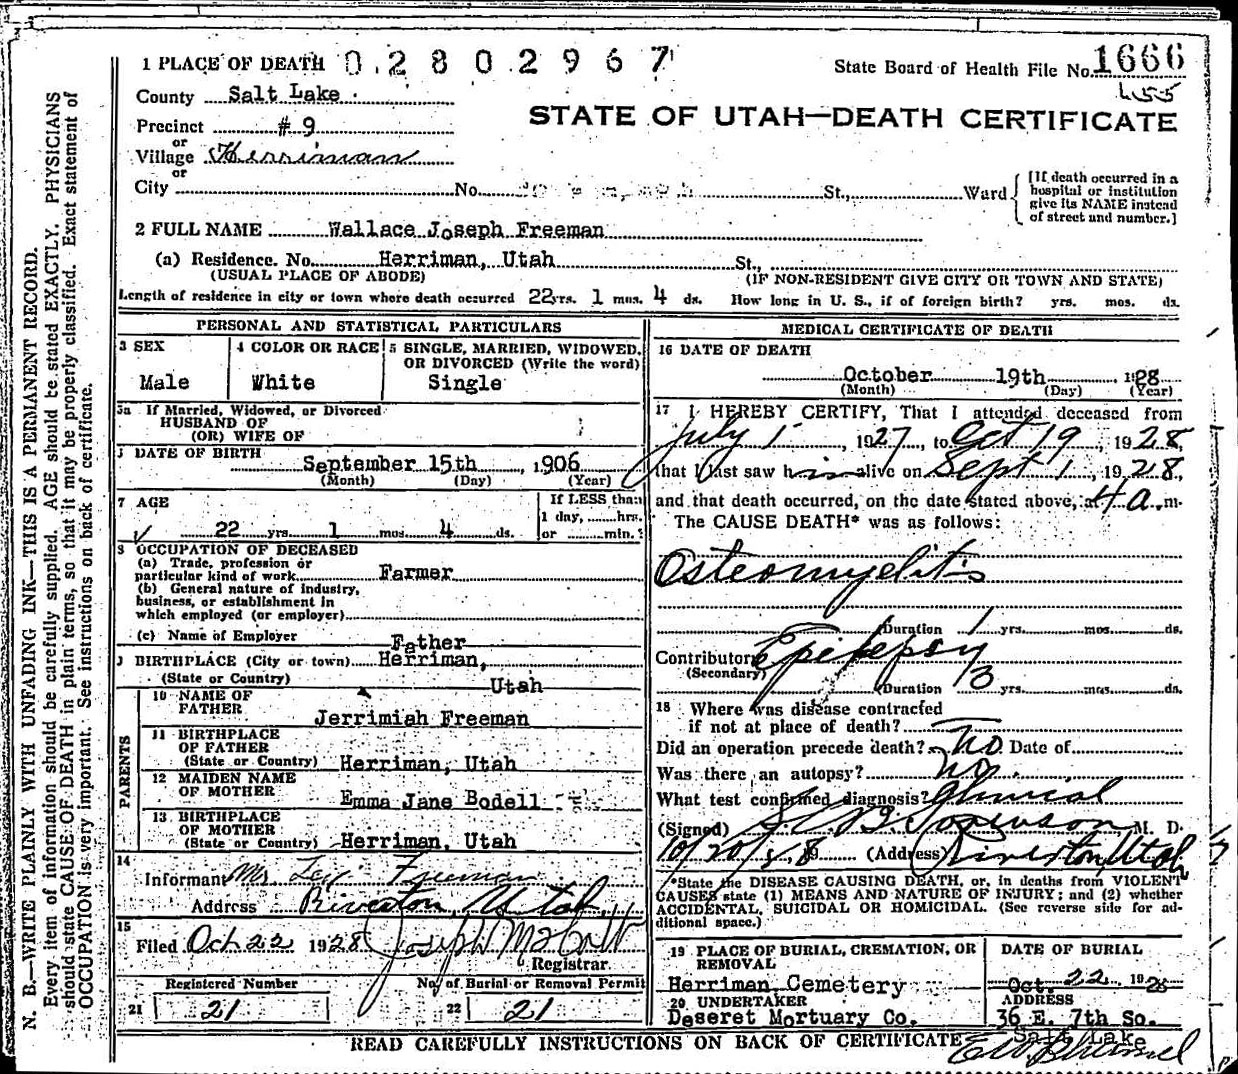 1 PLACE OF DEATH 0 2 8 0 2 9 6 7
State Board of Health File No. 1666
County Salt Lake
455
STATE OF UTAH—DEATH CERTIFICATE
Precinct # 9
or
Village Herriman
or
City No. St., Ward
[If death occurred in a
hospital or institution
give its NAME instead
of street and number.]
2 FULL NAME Wallace Joseph Freeman
(a) Residence. No. Herriman, Utah St.,
(USUAL PLACE OF ABODE) (IF NON-RESIDENT GIVE CITY OR TOWN AND STATE)
Length of residence in city or town where death occurred 22 yrs. 1 mos. 4 ds. How long in U. S., if of foreign birth? yrs. mos. ds.
PERSONAL AND STATISTICAL PARTICULARS
3 SEX
Male
4 COLOR OR RACE
White
5 SINGLE, MARRIED, WIDOWED,
OR DIVORCED (Write the word)
Single
5a If Married, Widowed, or Divorced
HUSBAND OF
(OR) WIFE OF
DATE OF BIRTH
September 15th, 1906
(Month) (Day) (Year)
7 AGE
22 yrs. 1 mos. 4 ds.
If LESS than
1 day, hrs.
or min.?
8 OCCUPATION OF DECEASED
(a) Trade, profession or
particular kind of work Farmer
(b) General nature of industry,
business, or establishment in
which employed (or employer)
(c) Name of Employer Father
9 BIRTHPLACE (City or town) Herriman,
(State or Country) Utah
PARENTS
10 NAME OF
FATHER
Jerrimiah Freeman
11 BIRTHPLACE
OF FATHER
(State or Country) Herriman, Utah
12 MAIDEN NAME
OF MOTHER
Emma Jane Bodell
13 BIRTHPLACE
OF MOTHER
(State or Country) Herriman, Utah
14
Informant Mr. Levi Freeman
Address Riverton, Utah
15
Filed Oct 22 1928 Joseph M
Registrar
Registered Number No. of Burial or Removal Permit
21 21 22 21
MEDICAL CERTIFICATE OF DEATH
16 DATE OF DEATH
October 19th 1928
(Month) (Day) (Year)
17 I HEREBY CERTIFY, That I attended deceased from
July 1, 1927, to Oct 19, 1928,
that I last saw him alive on Sept 1, 1928,
and that death occurred, on the date stated above, at 4 a. m.
The CAUSE DEATH* was as follows:
Osteomyelitis
(Duration 1 yrs. mos. ds.
Contributory Epilepsy
(Secondary)
(Duration 13 yrs. mos. ds.
18 Where was disease contracted
if not at place of death?
Did an operation precede death? no Date of
Was there an autopsy? no.
What test confirmed diagnosis? Clinical
(Signed) Sorenson M. D.
10/20/28 19 (Address) Riverton, Utah
*State the DISEASE CAUSING DEATH, or, in deaths from VIOLENT
CAUSES state (1) MEANS AND NATURE OF INJURY; and (2) whether
ACCIDENTAL, SUICIDAL OR HOMICIDAL. (See reverse side for ad-
ditional space.)
19 PLACE OF BURIAL, CREMATION, OR
REMOVAL
Herriman Cemetery
DATE OF BURIAL
Oct. 22 1928
20 UNDERTAKER
Deseret Mortuary Co.
ADDRESS
36 E. 7th So.
Salt Lake
READ CAREFULLY INSTRUCTIONS ON BACK OF CERTIFICATE
N. B.—WRITE PLAINLY WITH UNFADING INK—THIS IS A PERMANENT RECORD.
Every item of information should be carefully supplied. AGE should be stated EXACTLY. PHYSICIANS
should state CAUSE OF DEATH in plain terms, so that it may be properly classified. Exact statement of
OCCUPATION is very important. See instructions on back of certificate.